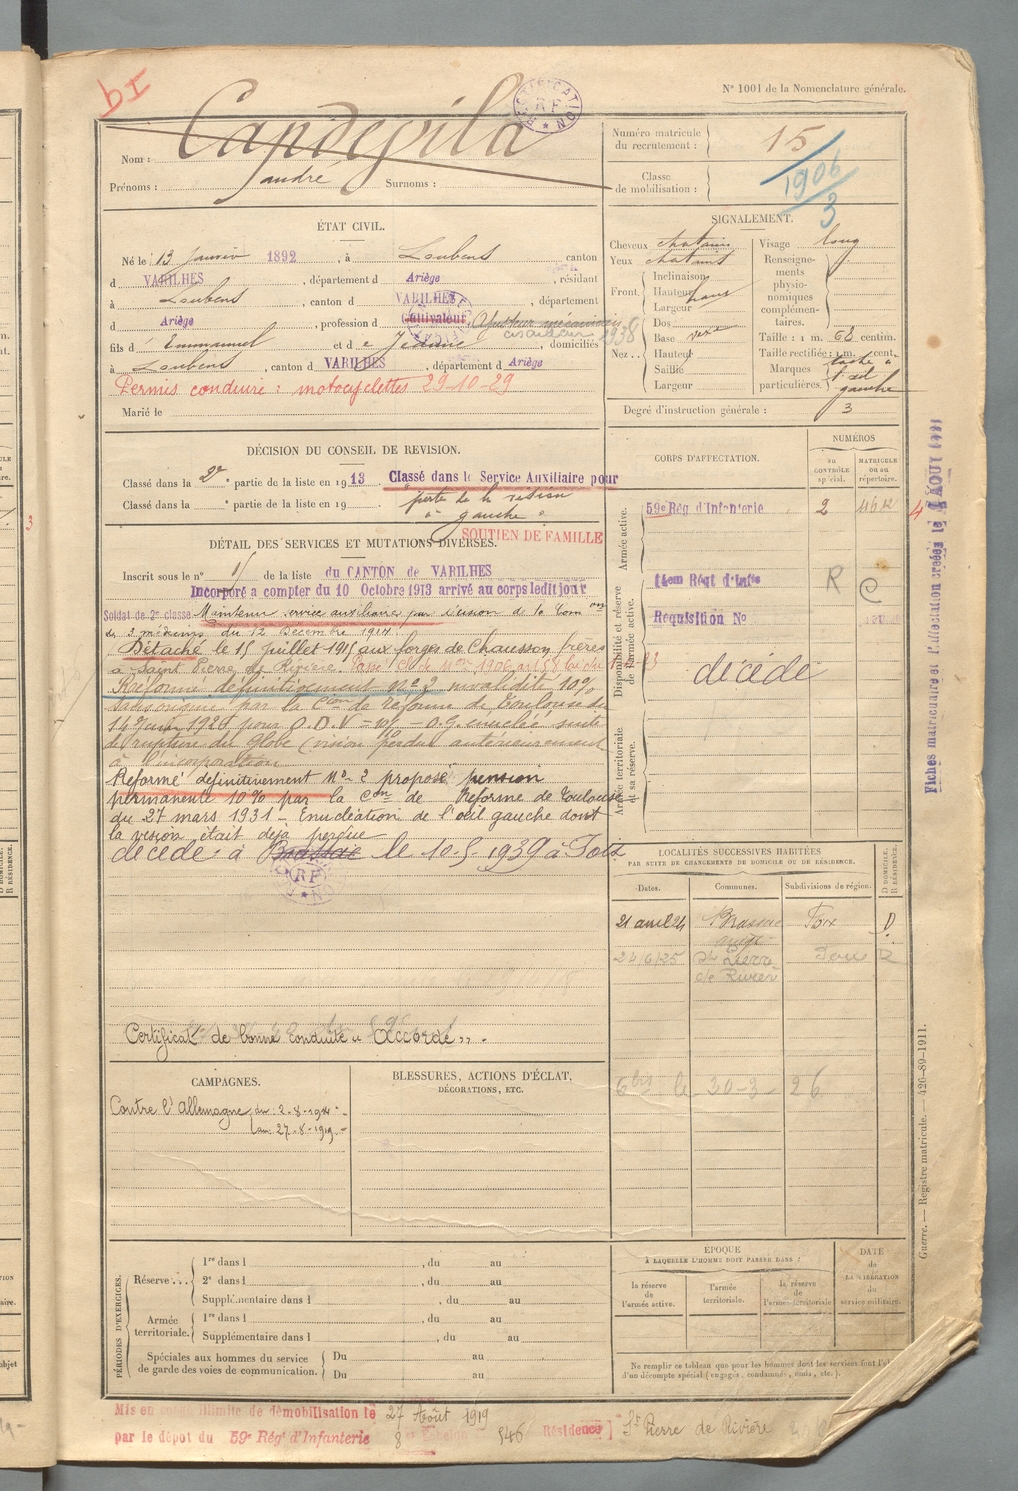 N° 1001 de la Nomenclature générale.
Capdevila
Nom :
Prénoms : Jandre Surnoms :
Numéro matricule du recrutement : 15
Classe de mobilisation : 1906/3
RECTIFICATION RF
ÉTAT CIVIL.
Né le 13 janvier 1892, à Loubens canton
d VARILHES, département d Ariège, résidant
à Loubens, canton d VARILHES, département
d Ariège, profession d Cultivateur, Ajusteur mécanicien
cisailleur 1938
fils d' Emmanuel et de Jeanne, domiciliés
à Loubens, canton d VARILHES, département d Ariège
Permis conduire : motocyclettes 29-10-29
Marié le
SIGNALEMENT.
Cheveux chatains
Yeux chatains
Front. Inclinaison
Hauteur haut
Largeur
Nez. Dos
Base
Hauteur
Saillie
Largeur
Visage long
Renseignements physionomiques complémentaires.
Taille : 1 m. 68 centim.
Taille rectifiée : 1 m. cent.
Marques particulières. tache à l'œil gauche
Degré d'instruction générale : 3
DÉCISION DU CONSEIL DE REVISION.
Classé dans la 2e partie de la liste en 1913 Classé dans le Service Auxiliaire pour
Classé dans la e partie de la liste en 19 perte de la vision
à gauche
SOUTIEN DE FAMILLE
DÉTAIL DES SERVICES ET MUTATIONS DIVERSES.
Inscrit sous le n° de la liste du CANTON de VARILHES
Incorporé a compter du 10 Octobre 1913 arrivé au corps ledit jour
Soldat de 2e classe Maintenu service auxiliaire par décision de la Comon
de 3 médecins du 12 Décembre 1914.
Détaché le 15 juillet 1915 aux forges de Chausson frères
à Saint Pierre de Rivière. Passé Cl. de Mon 1906 art 58 loi du
Réformé définitivement N° 2 invalidité 10%
par la Con de réforme de Toulouse du
1920 pour O.D.V = O.G. énucléé suite
de rupture du globe (vision perdue antérieurement
à l'incorporation
Réformé définitivement N° 2 proposé pension
permanente 10% par la Con de Réforme de Toulouse
du 27 mars 1931 - Enucléation de l'œil gauche dont
la vision était déjà perdue
décédé à Brassac le 10-5 1939 à Foix
RF
Certificat de bonne conduite « Accordé ».
CORPS D'AFFECTATION.
NUMÉROS
au CONTRÔLE spécial.
MATRICULE ou au répertoire.
Armée active.
59e Rég d'Infanterie 2
Disponibilité et réserve de l'armée active.
Réqt d'Inf R C
Réquisition No
décédé
Armée territoriale et sa réserve.
Fiches matriculaire et d'affectation créées le AOUT
LOCALITÉS SUCCESSIVES HABITÉES
PAR SUITE DE CHANGEMENTS DE DOMICILE OU DE RÉSIDENCE.
Dates. Communes. Subdivisions de région. D DOMICILE. R RÉSIDENCE.
21 avril 24 Brassac Foix D
24/6/25 St Pierre de Rivière R
6bis le 30-3-26
CAMPAGNES.
Contre l'Allemagne du : 2-8-1914
au : 27-8-1919
BLESSURES, ACTIONS D'ÉCLAT,
DÉCORATIONS, ETC.
PÉRIODES D'EXERCICES.
Réserve... 1re dans l , du au
2e dans l , du au
Supplémentaire dans l , du au
Armée territoriale. 1re dans l , du au
Supplémentaire dans l , du au
Spéciales aux hommes du service de garde des voies de communication. Du au
Du au
ÉPOQUE
À LAQUELLE L'HOMME DOIT PASSER DANS :
la réserve de l'armée active.
l'armée territoriale.
la réserve de l'armée territoriale
DATE de LA LIBÉRATION du service militaire.
Ne remplir ce tableau que pour les hommes dont les services font l'objet d'un décompte spécial (engagés, condamnés, omis, etc.).
Guerre. — Registre matricule. — 420-89-1911.
Mis en congé illimité de démobilisation le 27 Août 1919
par le dépot du 59e Rég d'Infanterie 8e Echelon 546 Résidence St Pierre de Rivière